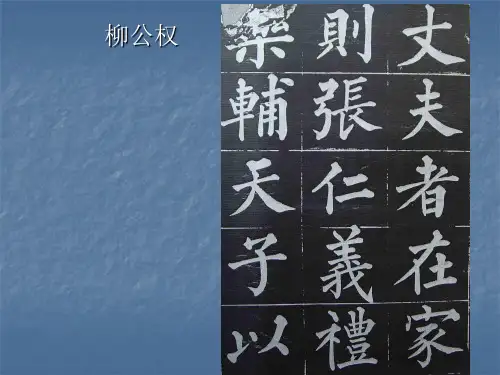 柳公权
丈夫者在家
則張仁義禮
樂輔天子以